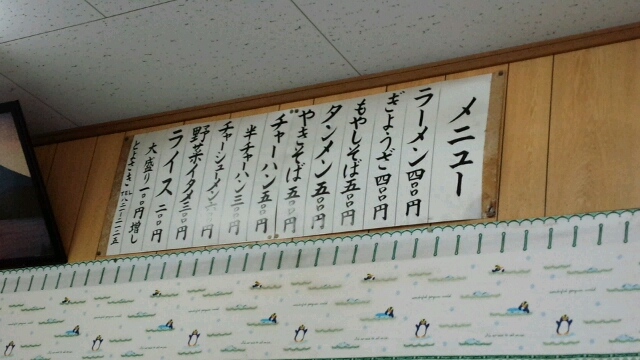 メニュー
ラーメン 四〇〇円
ぎょうざ 四〇〇円
もやしそば 五〇〇円
タンメン 五〇〇円
やきそば 五〇〇円
チャーハン 五〇〇円
半チャーハン 三〇〇円
チャーシューメン
野菜イタメ 三〇〇円
ライス 二〇〇円
大盛り 一〇〇円増し